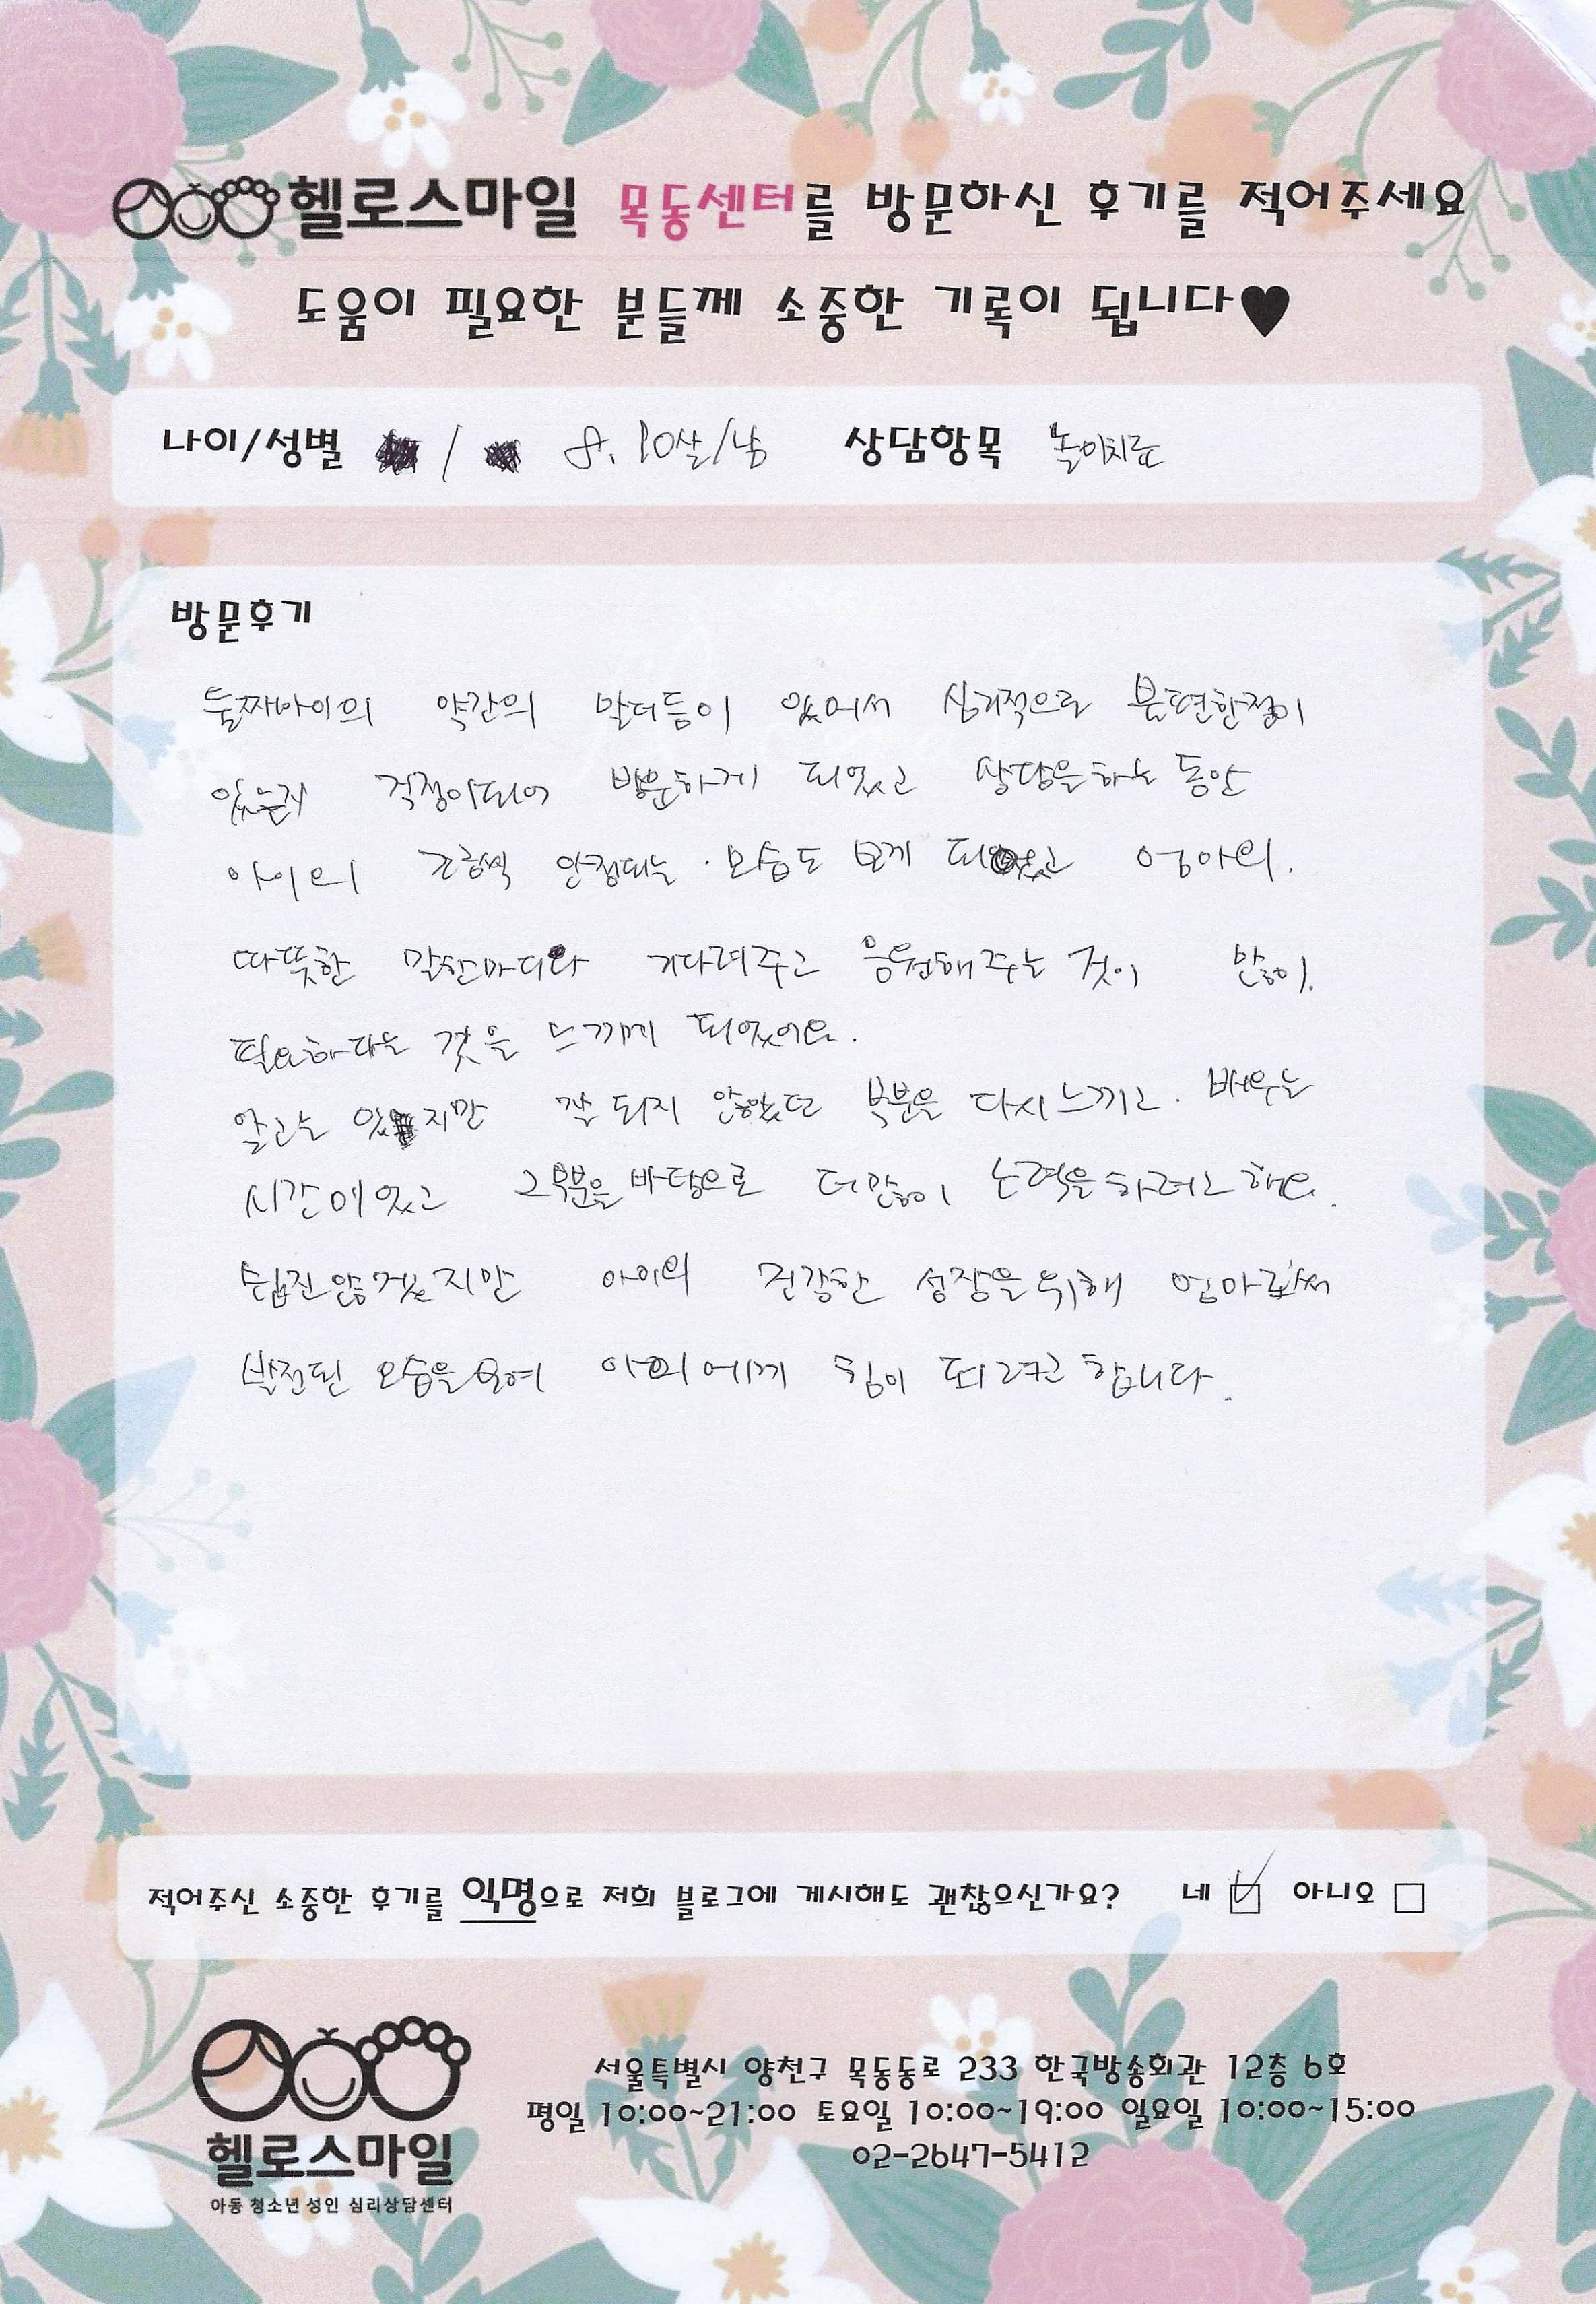 헬로스마일 목동센터를 방문하신 후기를 적어주세요
도움이 필요한 분들께 소중한 기록이 됩니다♥
나이/성별 / 8. 10살/남 상담항목 놀이치료
방문후기
둘째아이의 약간의 말더듬이 있어서 심리적으로 불편한점이
있는지 걱정이되어 방문하게 되었고 상담을하는 동안
아이의 조금씩 안정되는 모습도 보게 되었고 엄마의.
따뜻한 말한마디와 기다려주고 응원해주는 것이 많이.
필요하다는 것을 느끼게 되었어요.
알고는 있지만 잘 되지 않았던 부분을 다시느끼고. 배우는
시간이였고 그부분을 바탕으로 더많이 노력을하려고해요.
쉽진않겠지만 아이의 건강한 성장을위해 엄마로써
발전된 모습을보여 아이에게 힘이 되려고 합니다.
적어주신 소중한 후기를 익명으로 저희 블로그에 게시해도 괜찮으신가요? 네 ☑ 아니오 □
헬로스마일
아동 청소년 성인 심리상담센터
서울특별시 양천구 목동동로 233 한국방송회관 12층 6호
평일 10:00~21:00 토요일 10:00~19:00 일요일 10:00~15:00
02-2647-5412